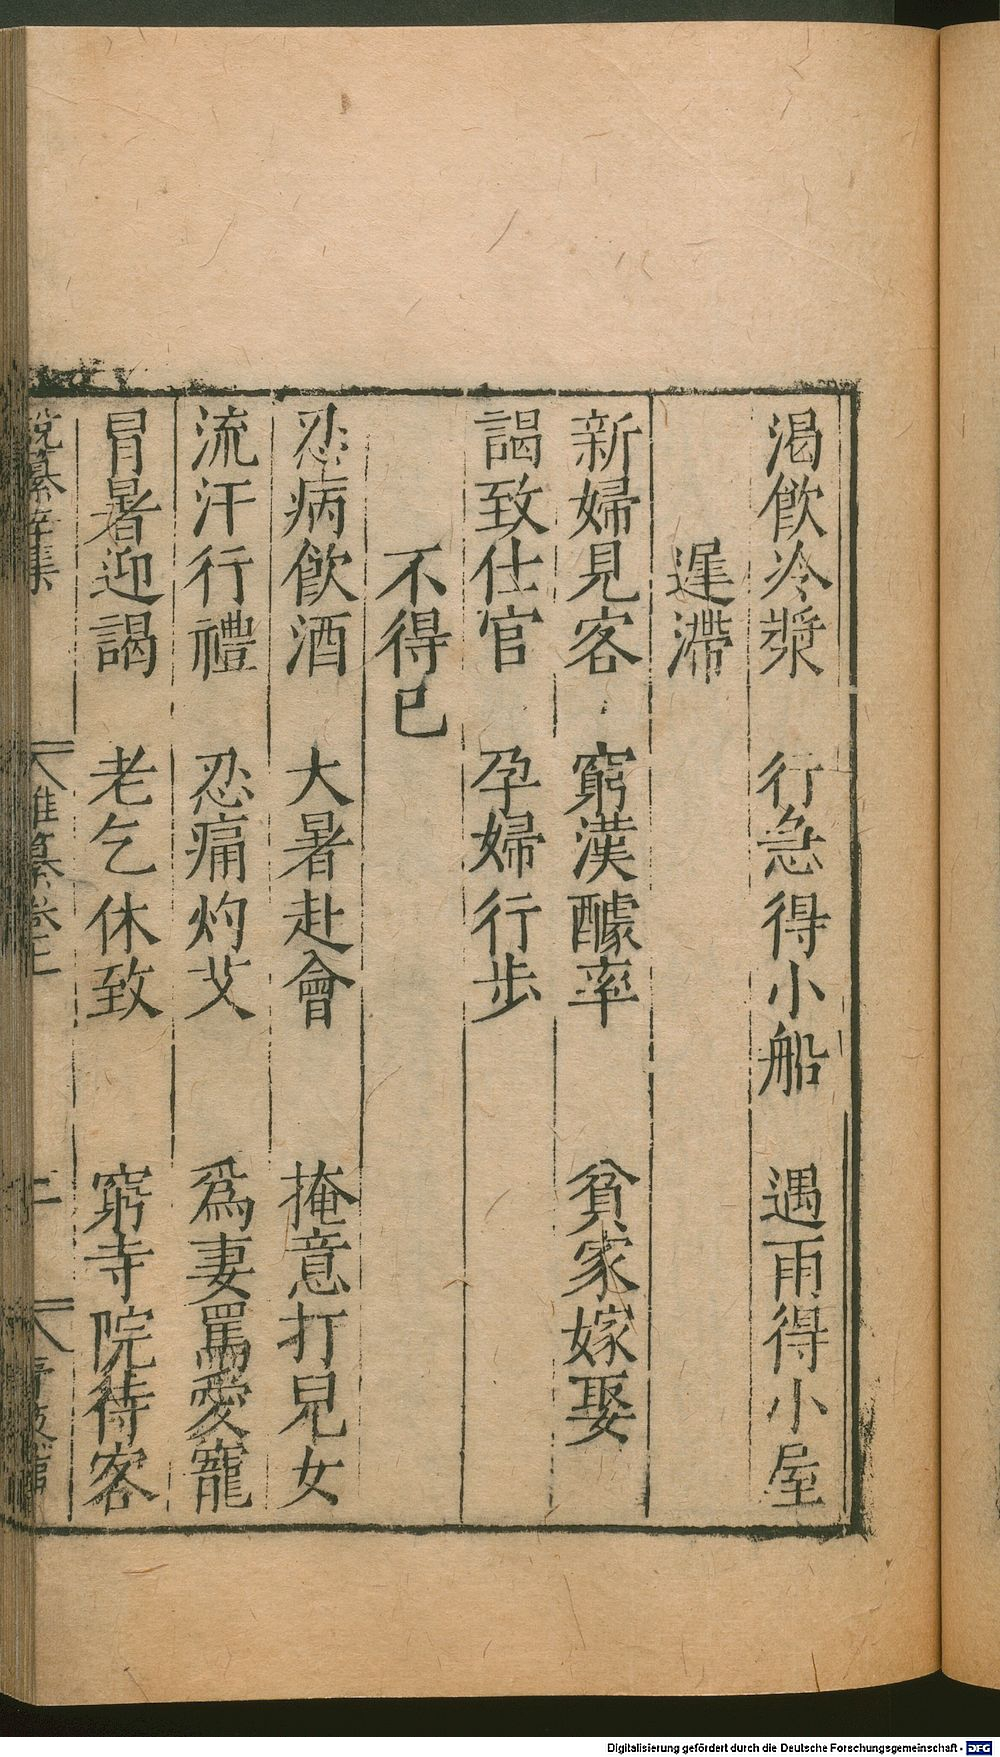 渴飲冷漿　行急得小船　遇雨得小屋
遲滯
新婦見客　窮漢醵率　貧家嫁娶
謁致仕官　孕婦行步
不得已
忍病飲酒　大暑赴會　掩意打兒女
流汗行禮　忍痛灼艾　爲妻罵愛寵
冒暑迎謁　老乞休致　窮寺院待客
雜纂卷上
Digitalisierung gefördert durch die Deutsche Forschungsgemeinschaft - DFG